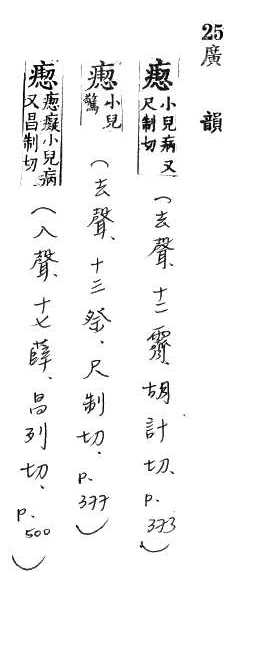 25
廣韻
瘛小兒病又尺制切(去聲、十二霽、胡計切、p.373)
瘛小兒驚(去聲、十三祭、尺制切、p.377)
瘛瘛瘲小兒病又昌制切(入聲、十七薛、昌列切、p.500)